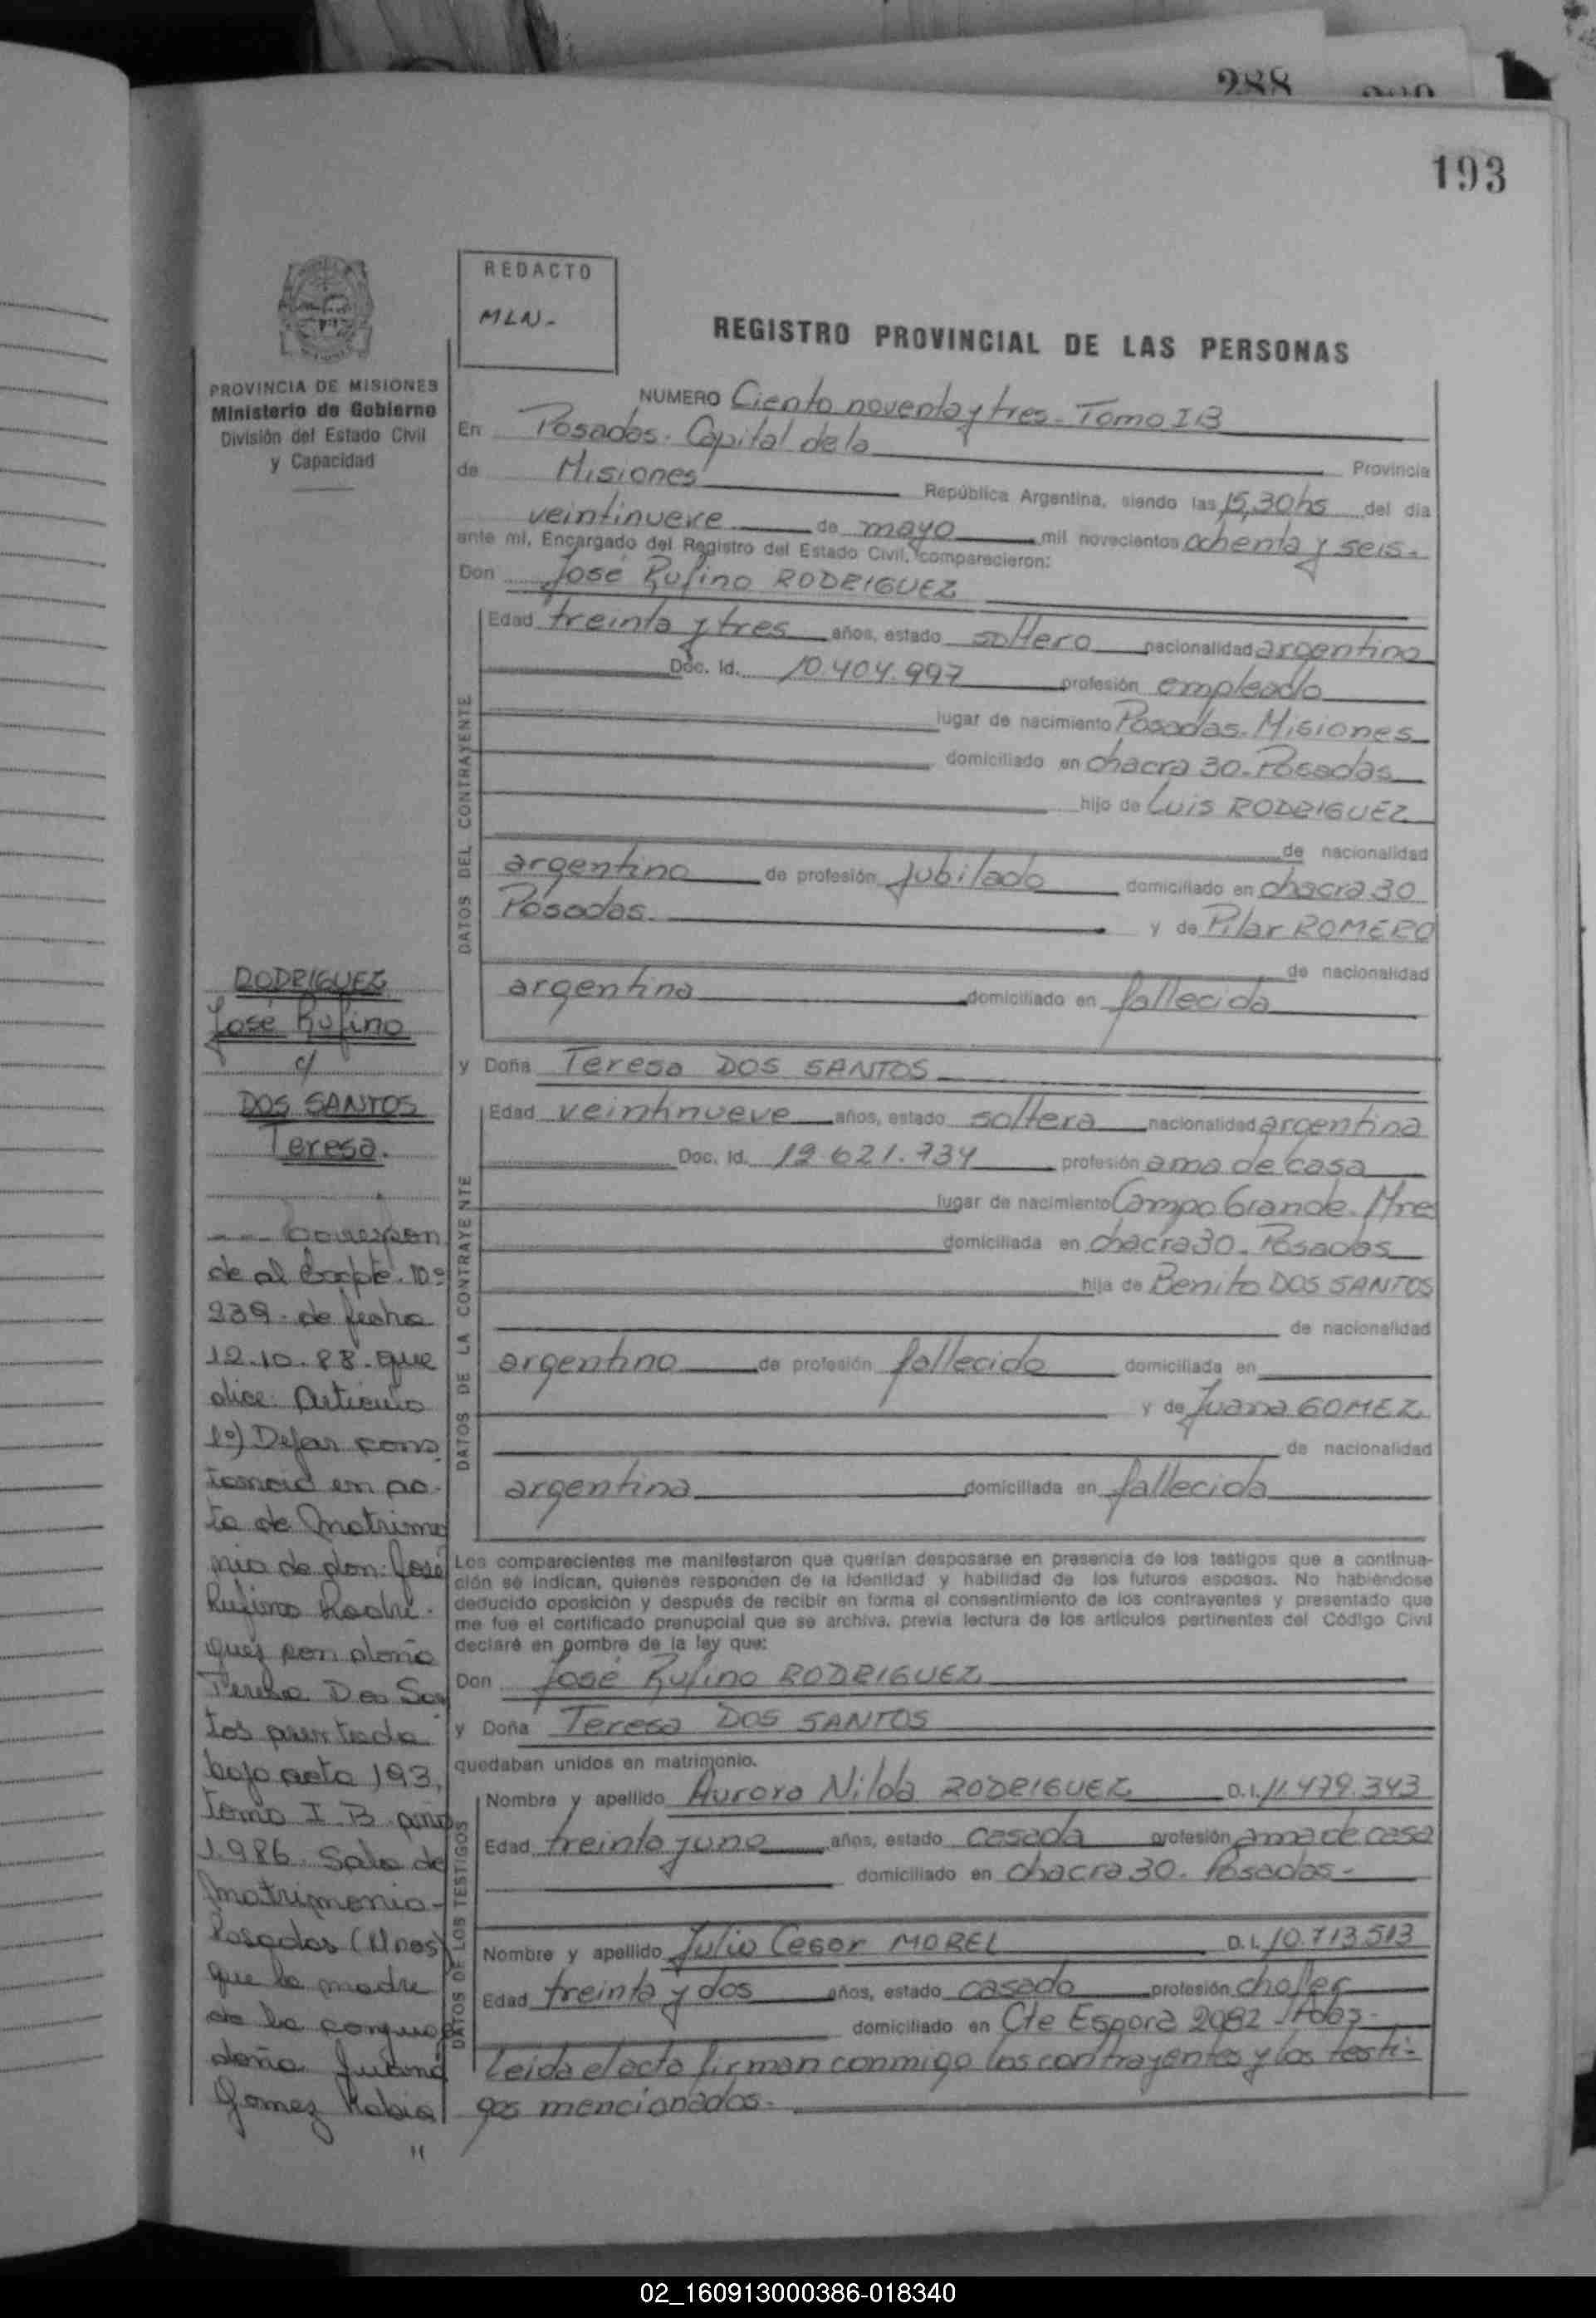 288
193
REDACTO
MLN-
REGISTRO PROVINCIAL DE LAS PERSONAS
PROVINCIA DE MISIONES
Ministerio de Gobierno
División del Estado Civil
y Capacidad
NUMERO Ciento noventa y tres - Tomo I B
En Posadas. Capital de la Provincia
de Misiones República Argentina, siendo las 15,30 hs del día
veintinueve de mayo mil novecientos ochenta y seis.-
ante mí, Encargado del Registro del Estado Civil, comparecieron:
Don José Rufino RODRIGUEZ
DATOS DEL CONTRAYENTE
Edad treinta y tres años, estado soltero nacionalidad argentino
Doc. Id. 10.404.997 profesión empleado
lugar de nacimiento Posadas. Misiones
domiciliado en chacra 30. Posadas
hijo de Luis RODRIGUEZ
de nacionalidad
argentino de profesión Jubilado domiciliado en chacra 30
Posadas. y de Pilar ROMERO
de nacionalidad
argentina domiciliado en fallecida
y Doña Teresa DOS SANTOS
DATOS DE LA CONTRAYENTE
Edad veintinueve años, estado soltera nacionalidad argentina
Doc. Id. 12.621.734 profesión ama de casa
lugar de nacimiento Campo Grande. Mnes
domiciliada en chacra 30. Posadas
hija de Benito DOS SANTOS
de nacionalidad
argentino de profesión fallecido domiciliada en
y de Juana GOMEZ
de nacionalidad
argentina domiciliada en fallecida
Los comparecientes me manifestaron que querían desposarse en presencia de los testigos que a continua-
ción se indican, quienes responden de la identidad y habilidad de los futuros esposos. No habiéndose
deducido oposición y después de recibir en forma el consentimiento de los contrayentes y presentado que
me fue el certificado prenupcial que se archiva, previa lectura de los artículos pertinentes del Código Civil
declaré en nombre de la ley que:
Don José Rufino RODRIGUEZ
y Doña Teresa DOS SANTOS
quedaban unidos en matrimonio.
DATOS DE LOS TESTIGOS
Nombre y apellido Aurora Nilda RODRIGUEZ D.I. 11.479.343
Edad treinta y uno años, estado casada profesión ama de casa
domiciliado en chacra 30. Posadas-
Nombre y apellido Julio Cesar MOREL D.I. 10.713.513
Edad treinta y dos años, estado casado profesión chofer
domiciliado en Cte Espora 2082
Leida el acta firman conmigo los contrayentes y los testi-
gos mencionados.-
RODRIGUEZ
José Rufino
c/
DOS SANTOS
Teresa.
--- Correspon
de al Expte. nº
239 - de fecha
12.10.88. que
dice: Artículo
1º) Dejar cons
tancia en ac-
ta de Matrimo
nio de don: José
Rufino Rodri-
guez con doña
Teresa Dos San
tos asentada
bajo acta 193,
Tomo I. B año
1.986. Sala de
Matrimonio-
Posadas (Mnes)
que la madre
de la conyuge
doña Juana
Gomez Habia
"
02_160913000386-018340